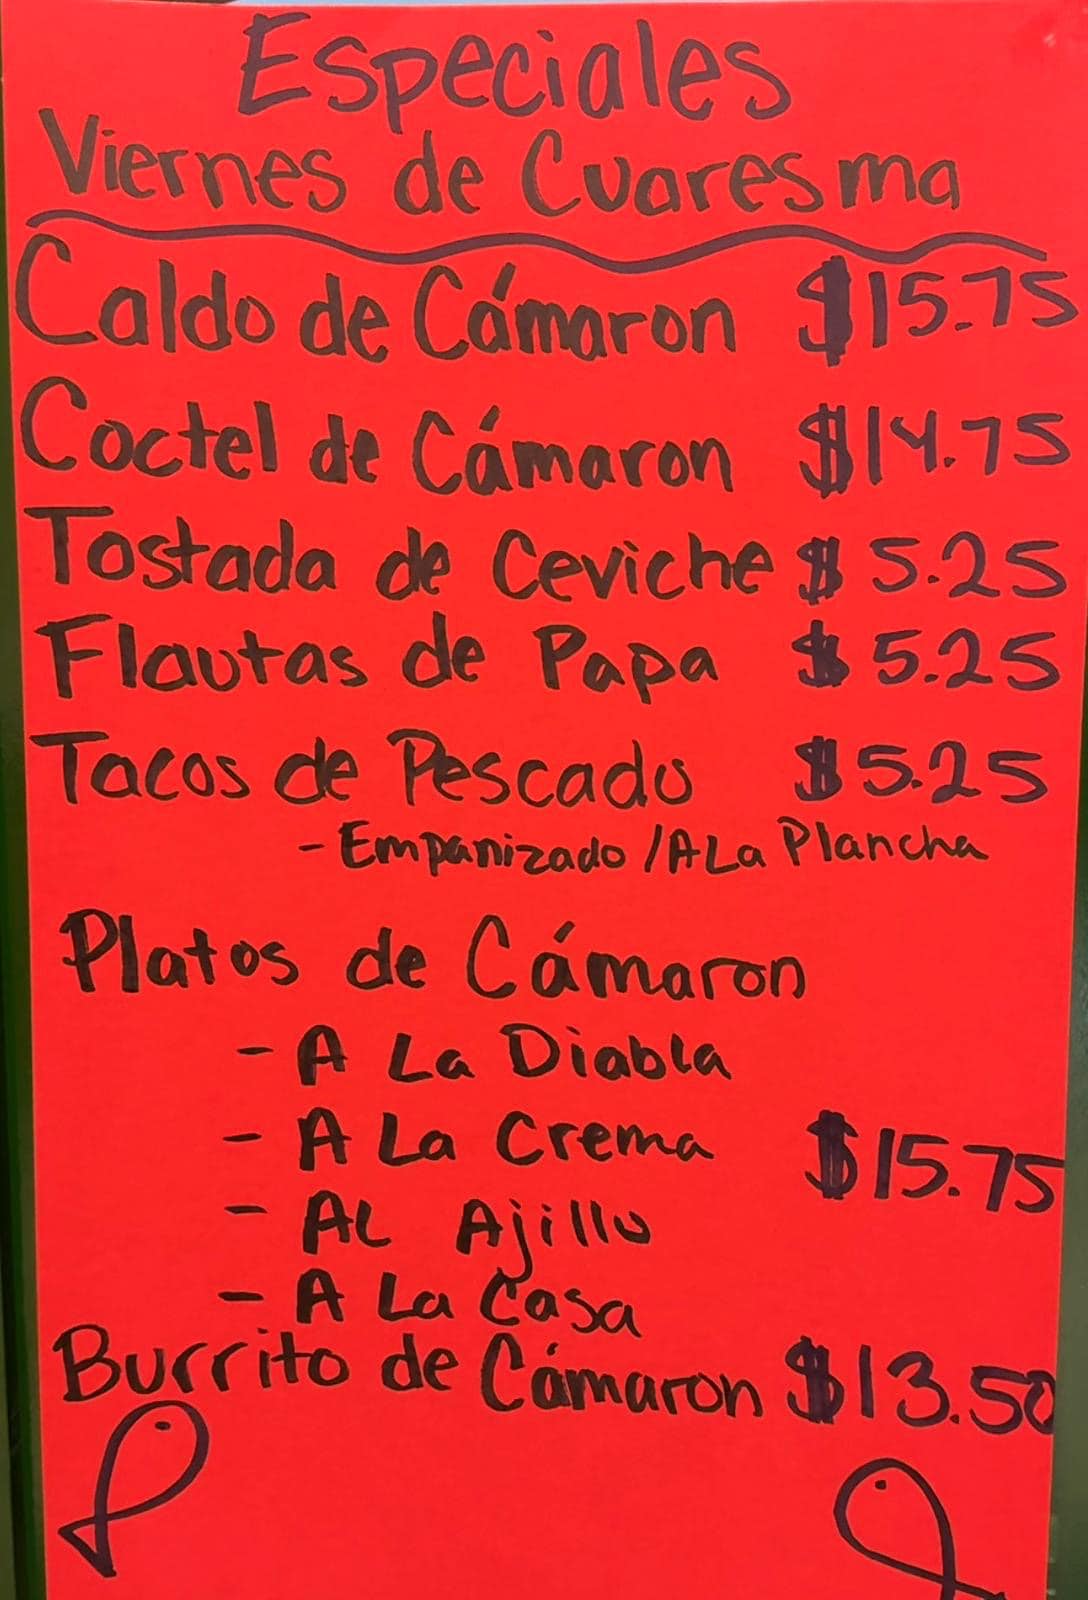 Especiales
Viernes de Cuaresma
Caldo de Cámaron $15.75
Coctel de Cámaron $14.75
Tostada de Ceviche $5.25
Flautas de Papa $5.25
Tacos de Pescado $5.25
- Empanizado / A La Plancha
Platos de Cámaron
- A La Diabla
- A La Crema $15.75
- AL Ajillo
- A La Casa
Burrito de Cámaron $13.50